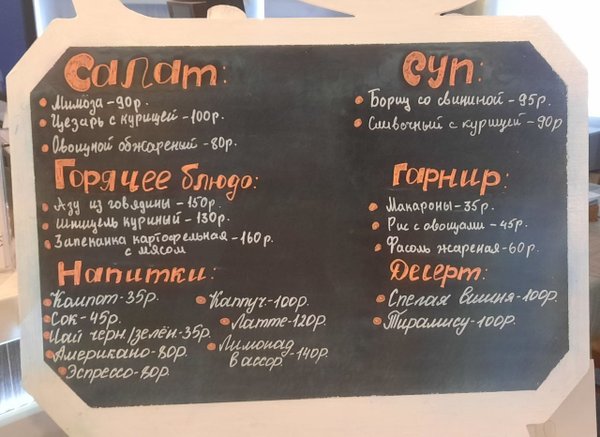 Салат:
Мимоза-90р.
Цезарь с курицей-100р.
Овощной обжареный-80р.
Суп:
Борщ со свининой-95р.
Сливочный с курицей-90р
Горячее блюдо:
Азу из говядины-150р.
Шницель куриный-130р.
Запеканка картофельная-160р.
с мясом
Гарнир:
Макароны-35р.
Рис с овощами-45р.
Фасоль жареная-60р.
Напитки:
Компот-35р.
Сок-45р.
Чай черн./зелён.-35р.
Американо-80р.
Эспрессо-80р.
Каппуч-100р.
Латте-120р.
Лимонад
в ассор.-140р.
Десерт:
Спелая вишня-100р.
Тирамису-100р.